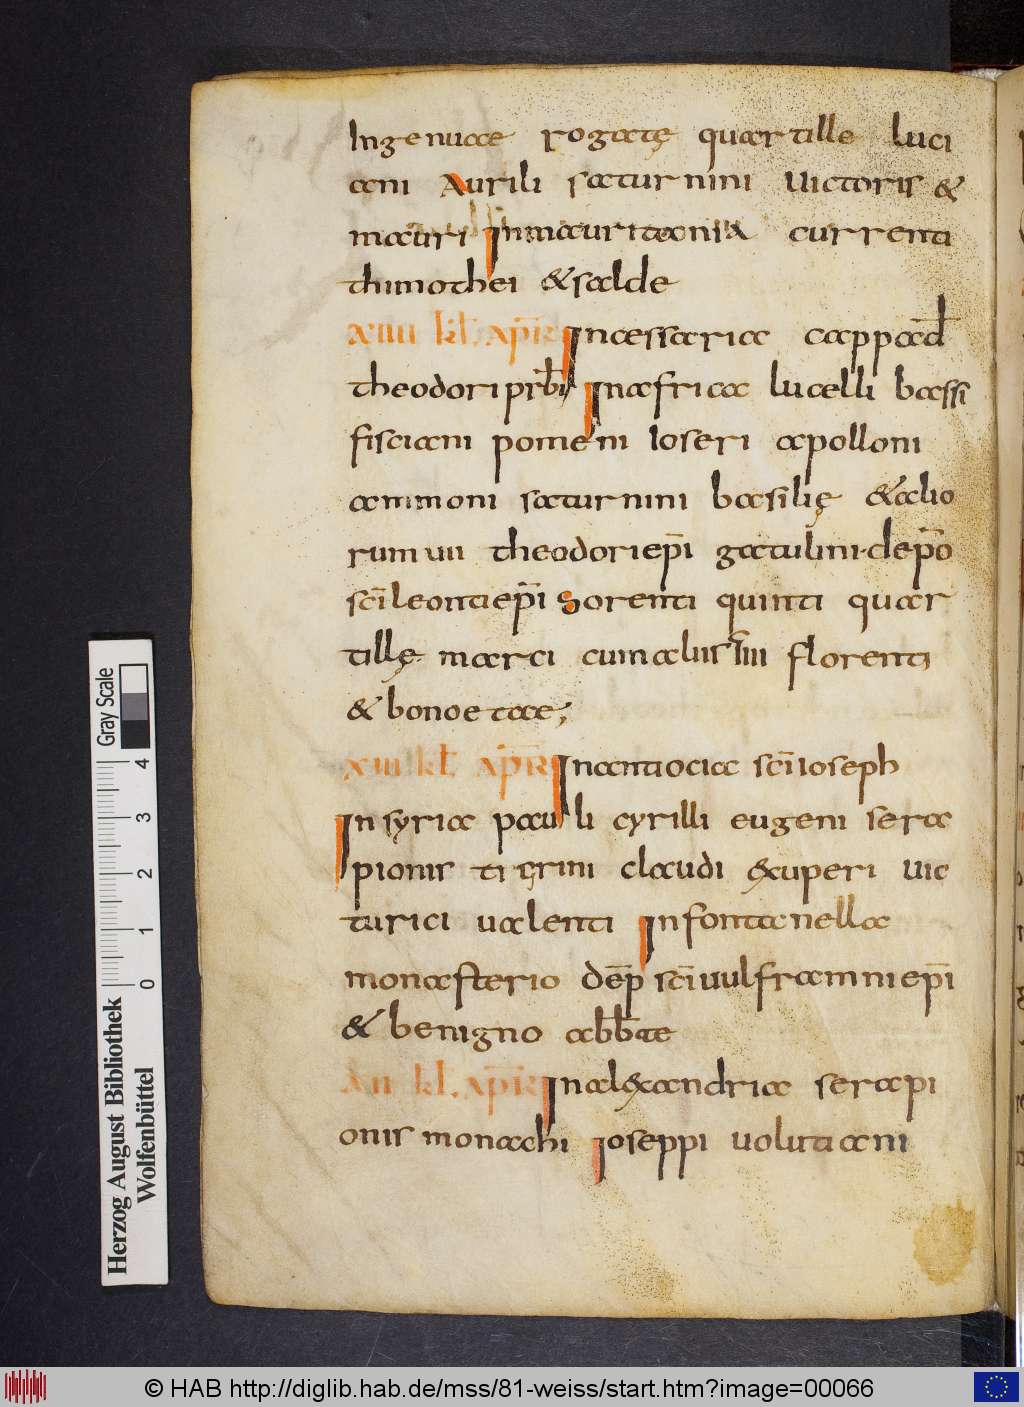 Ingenuae rogatę quartille luci
ani Aurili saturnini uictoris &
mauri Inmauritania currenti
thimothei & salde
XIIII kl̄. APR̄ Incessaria cappad̄
theodori prb̄i Inafrica lucelli bassi
fisciani pomeni ioseri apolloni
ammoni saturnini basilię & alio
rum uii theodori ep̄i gatulini. dep̄o
sc̄i leonti ep̄i Sorenti quinti quar
tillę marci cum aliis uiiii florenti
& bonoetae;
XIII kl̄ APR̄ Inantiocia sc̄i ioseph
In syria pauli cyrilli eugeni sera
pionis tigrini claudi exuperi uic
turici ualenti Infontanella
monasterio dep̄ sc̄i uulframni ep̄i
& benigno abb̄ate
XII kl. APR̄ Inalexandria serapi
onis monachi Ioseppi uolutiani
Herzog August Bibliothek
Wolfenbüttel
0 1 2 3 4
Gray Scale
© HAB http://diglib.hab.de/mss/81-weiss/start.htm?image=00066